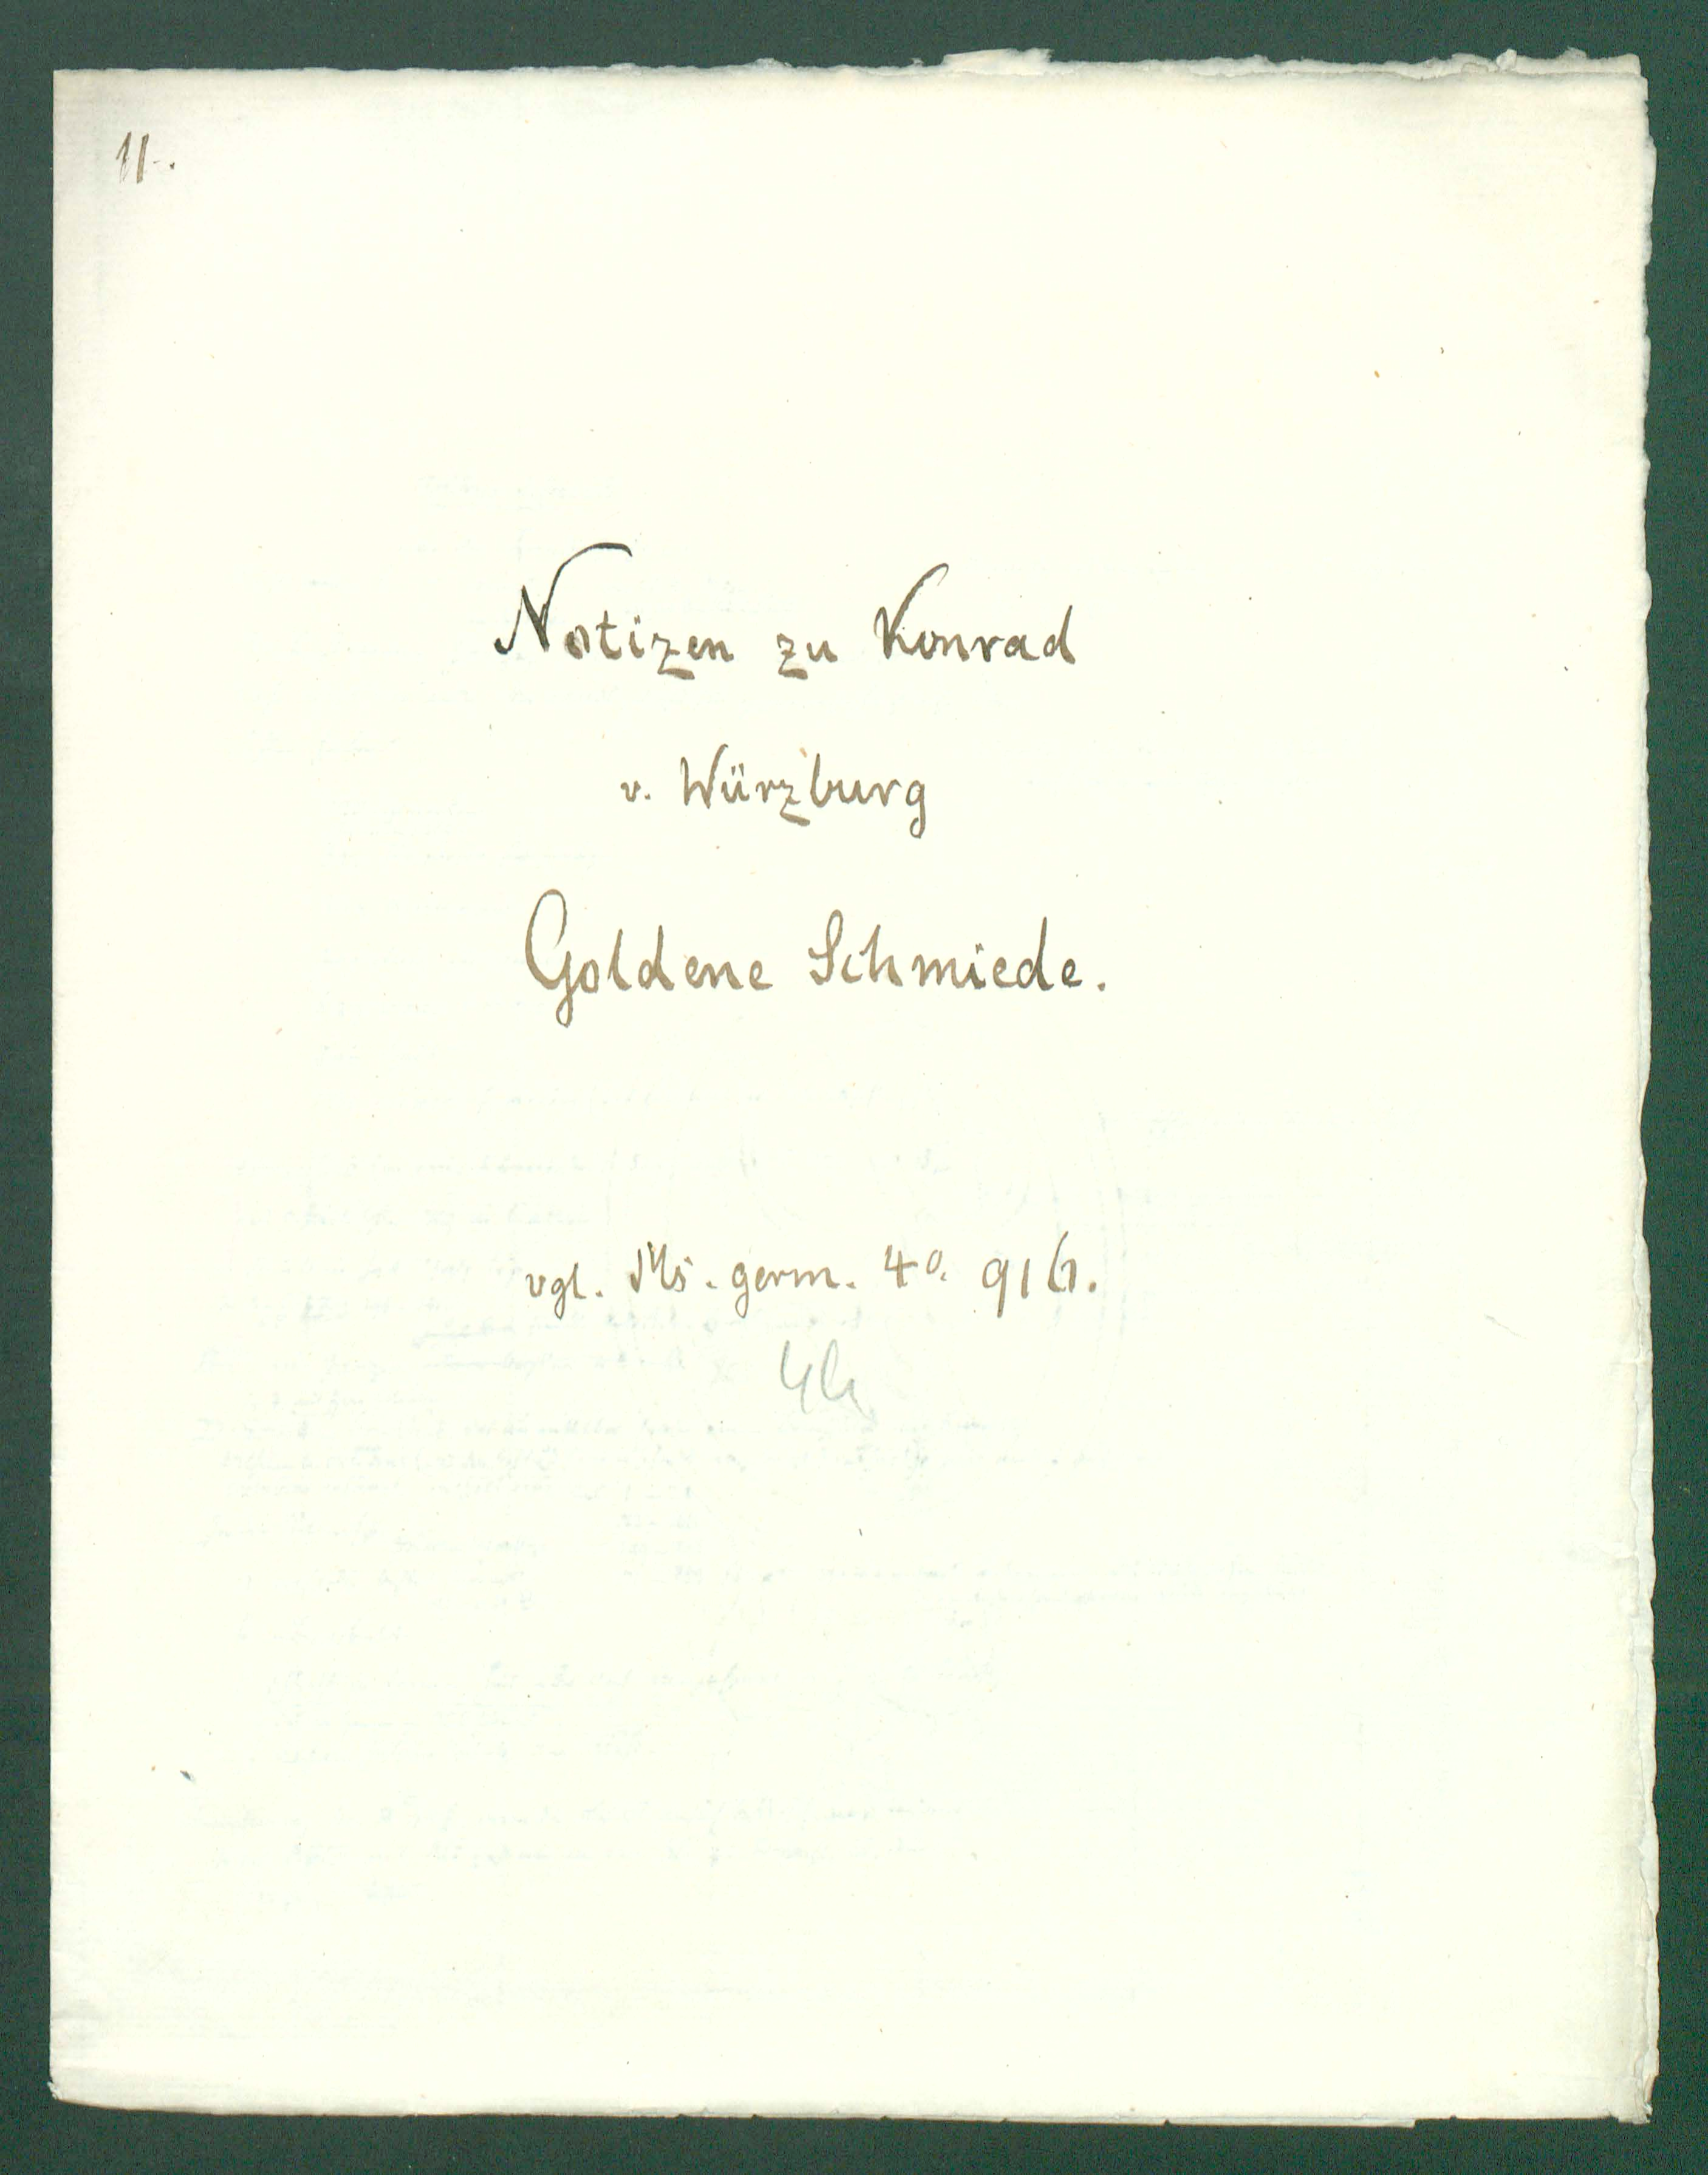 11.
Notizen zu Konrad
v. Würzburg
Goldene Schmiede.
vgl. Ms. germ. 4º. 916.